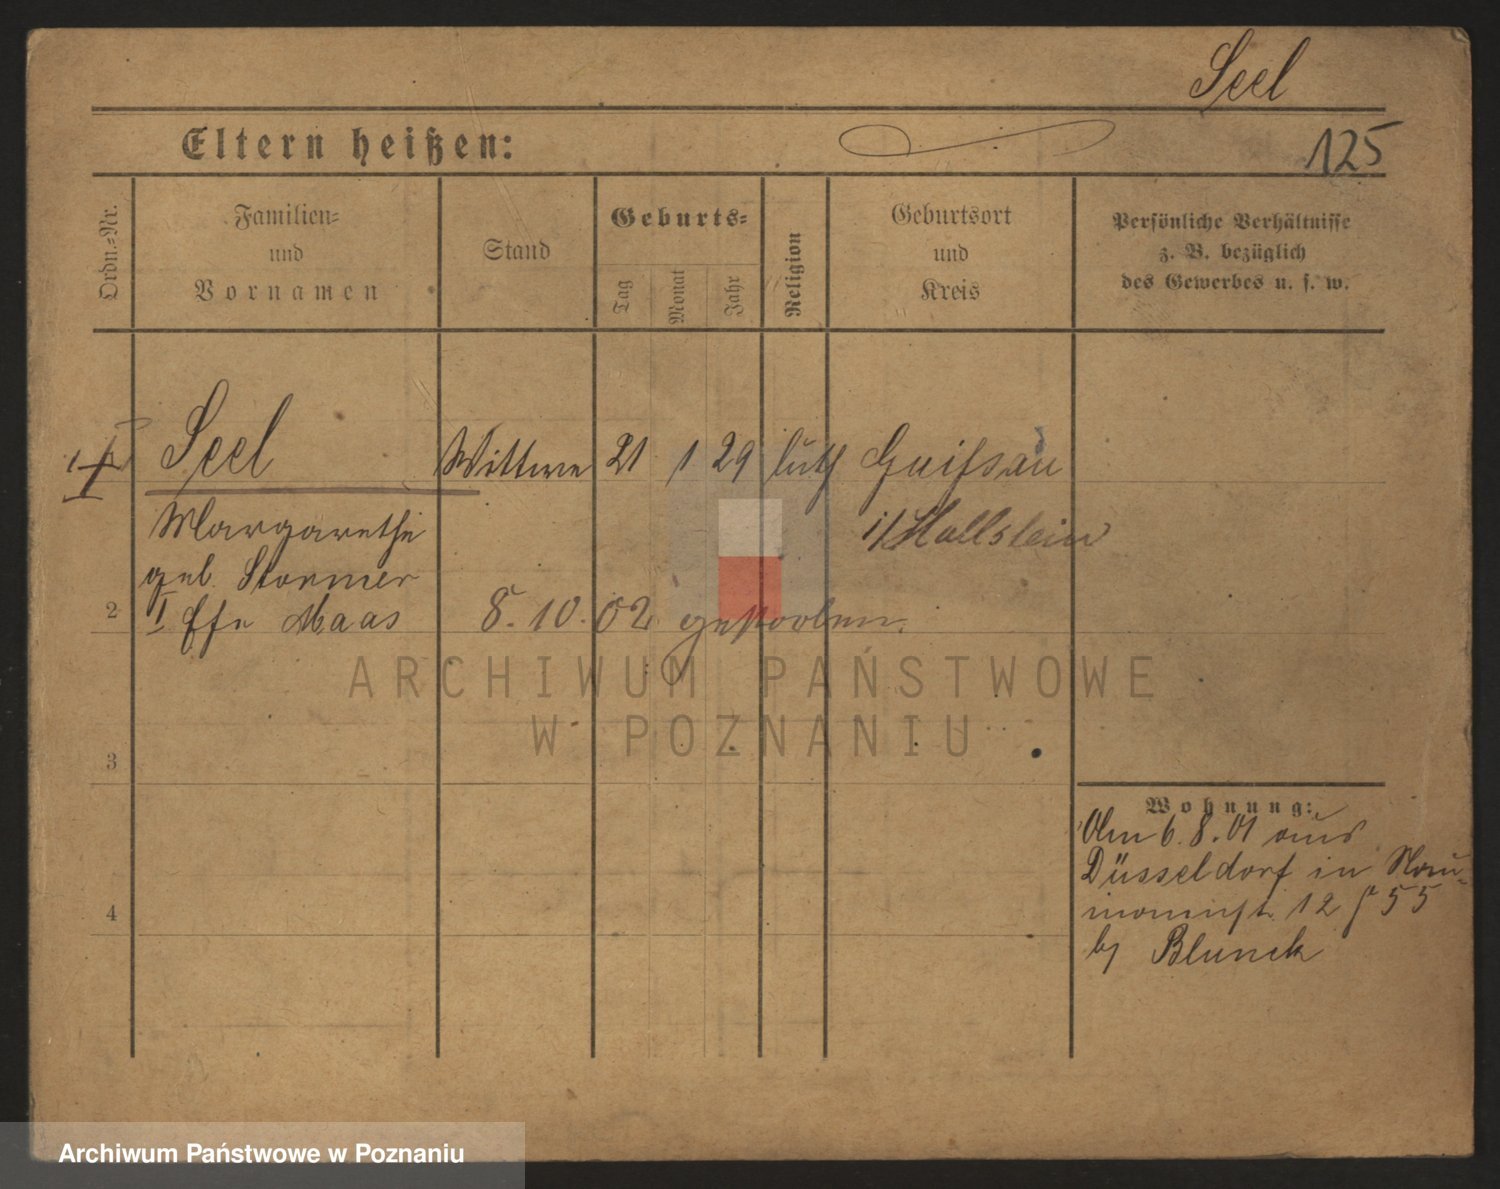 Seel
Eltern heißen:
125
Ordn.-Nr.
Familien-
und
Vornamen
Stand
Geburts-
Tag
Monat
Jahr
Religion
Geburtsort
und
Kreis
Persönliche Verhältnisse
z. B. bezüglich
des Gewerbes u. s. w.
1
Seel Wittwe 21 1 29 luth
Margarethe
i/Hollstein
geb. Stoemer
2 I Ehe Maas 8. 10. 02 gestorben.
ARCHIWUM PAŃSTWOWE
W POZNANIU
3
Wohnung:
Am 6. 8. 01 aus
Düsseldorf in Nau-
mannstr. 12
by Blunck
4
Archiwum Państwowe w Poznaniu